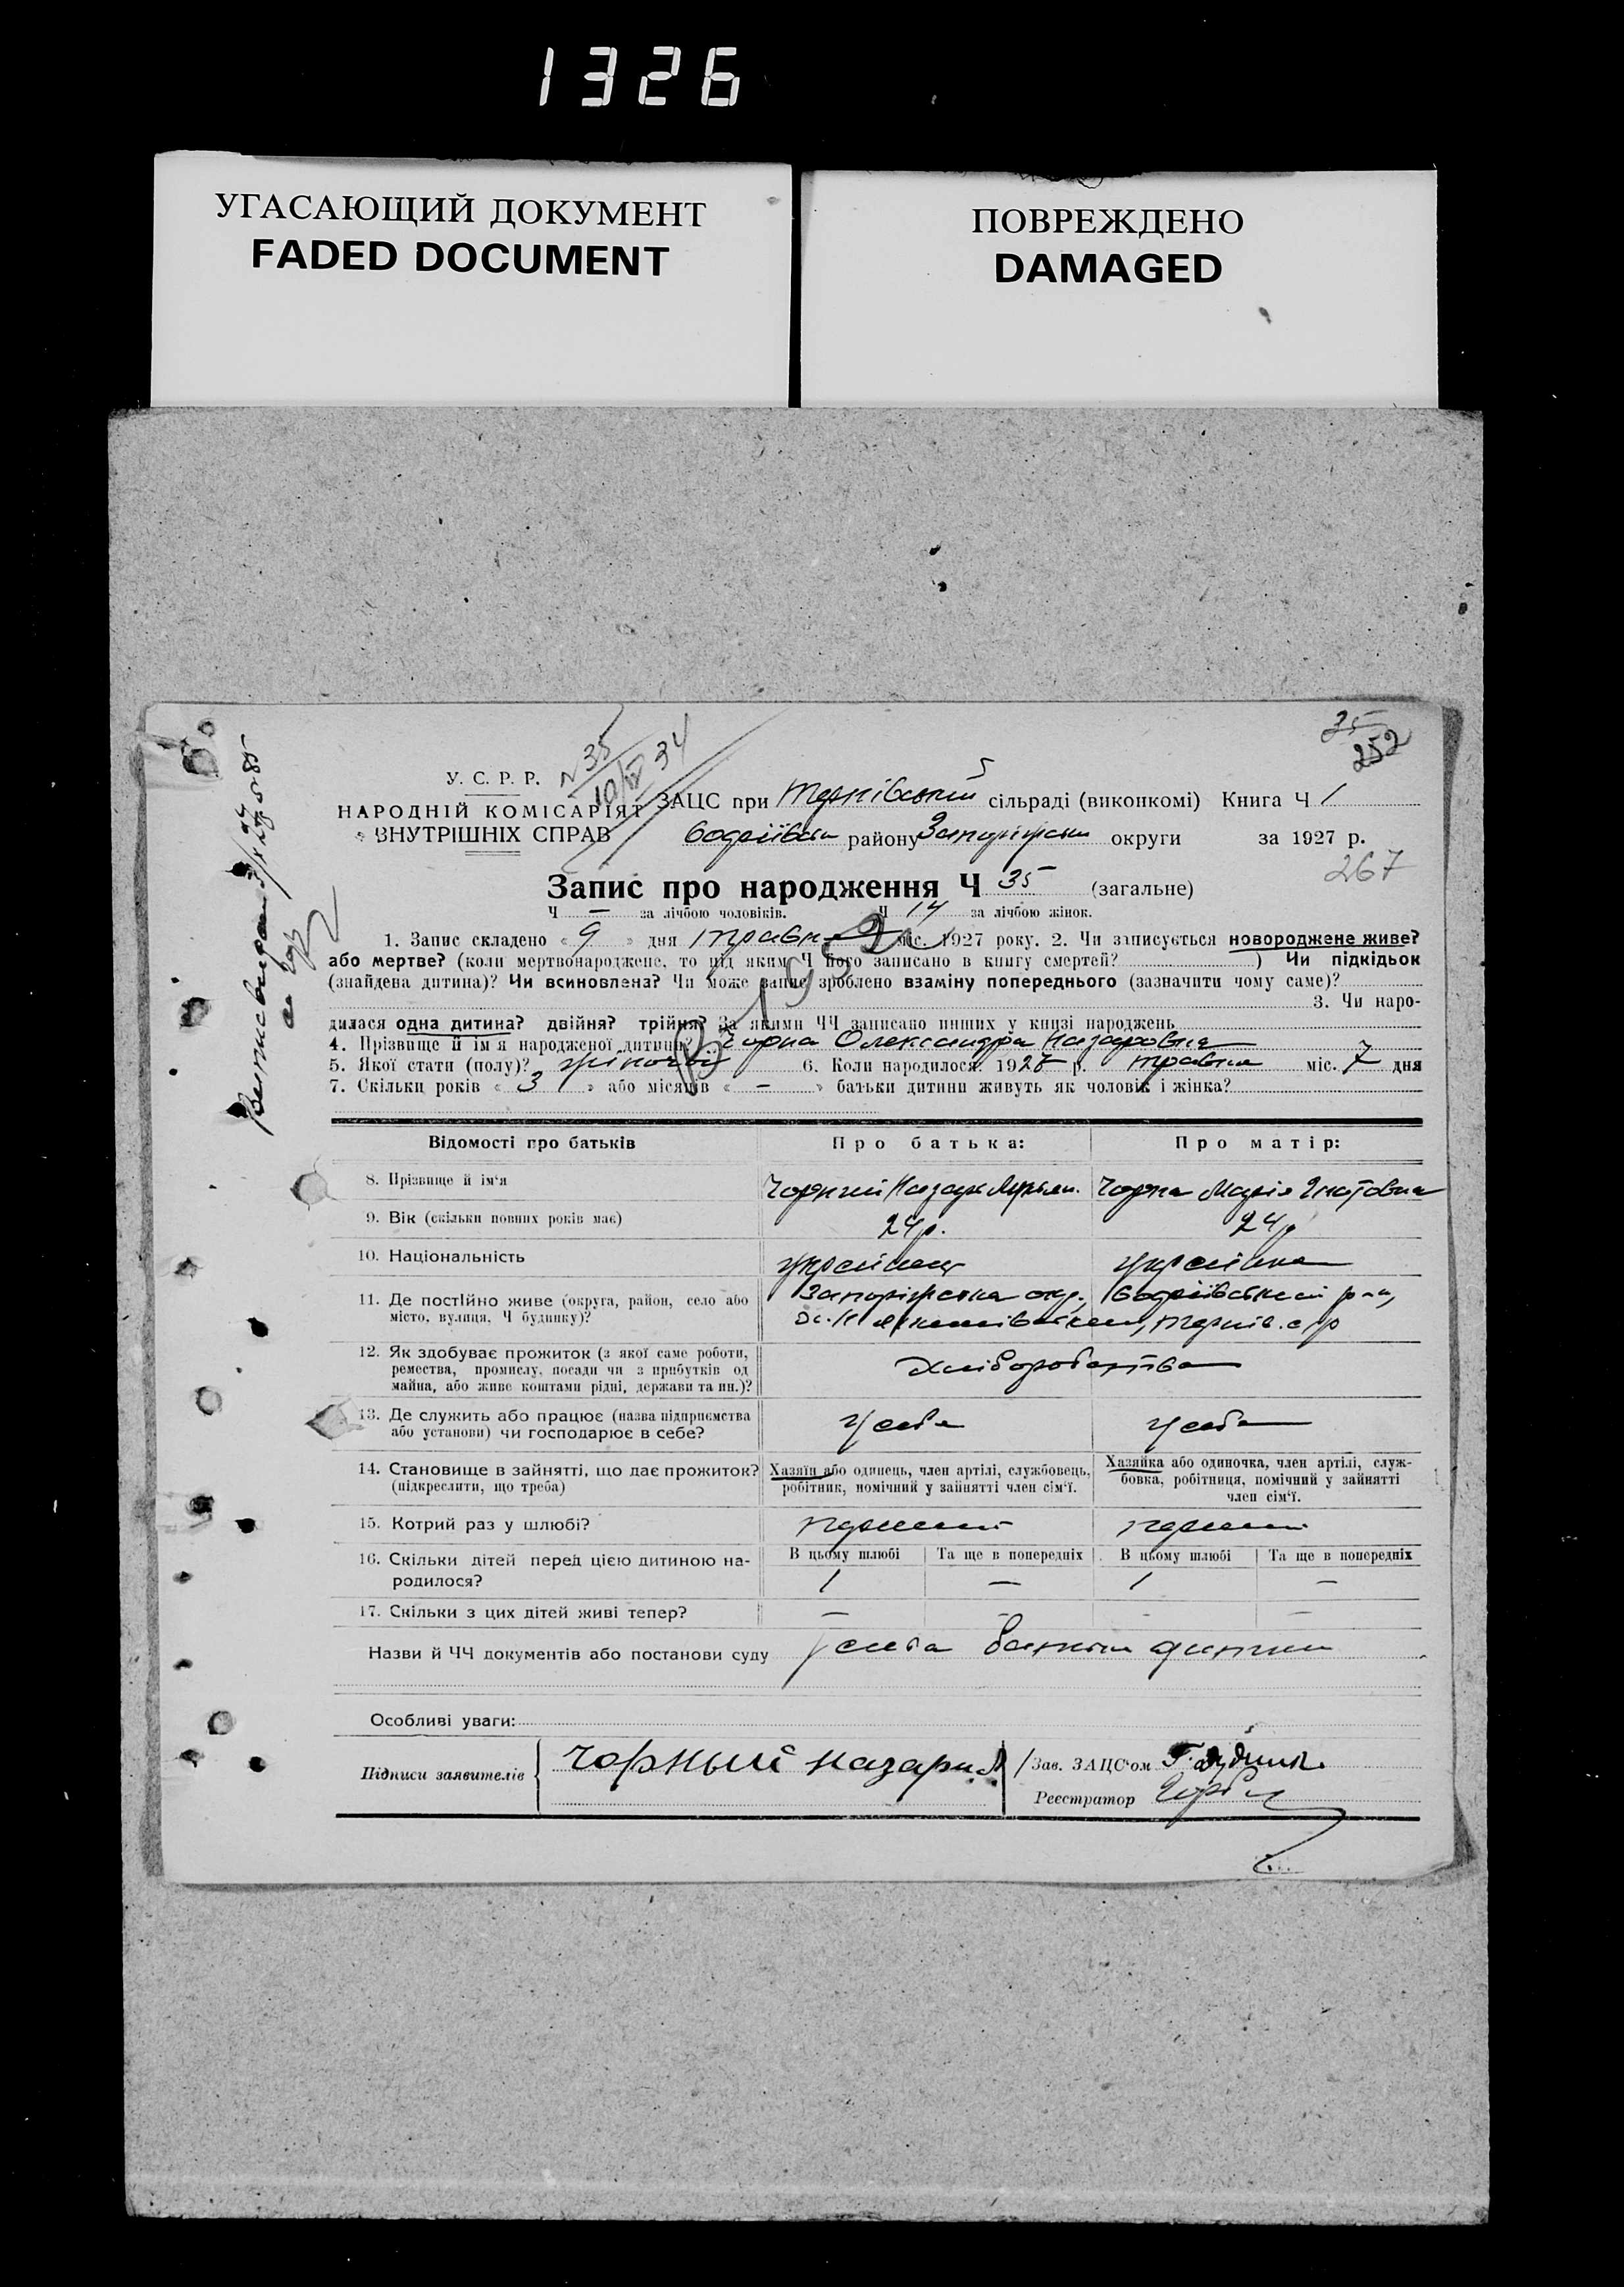 1326
УГАСАЮЩИЙ ДОКУМЕНТ
FADED DOCUMENT
ПОВРЕЖДЕНО
DAMAGED
35
252
N 35
10/IV 34
У. С. Р. Р.
НАРОДНІЙ КОМІСАРІЯТ
ВНУТРІШНІХ СПРАВ
ЗАЦС при Тернівській сільраді (виконкомі) Книга Ч 1
району Запоріжськ округи за 1927 р.
267
Запис про народження Ч 35 (загальне)
Ч — за лічбою чоловіків. Ч 14 за лічбою жінок.
1. Запис складено « 9 » дня травня міс. 1927 року. 2. Чи записується новороджене живе?
або мертве? (коли мертвонароджене, то під яким Ч його записано в книгу смертей? ) Чи підкідьок
(знайдена дитина)? Чи всиновлена? Чи може запис зроблено взаміну попереднього (зазначити чому саме)?
3. Чи наро-
дилася одна дитина? двійня? трійня? За якими ЧЧ записано инших у книзі народжень
4. Прізвище й ім'я народженої дитини? Чорна Олександра Назаровна
5. Якої стати (полу)? жіночої 6. Коли народилося: 1927 р. травня міс. 7 дня
7. Скільки років « 3 » або місяців « — » батьки дитини живуть як чоловік і жінка?
Відомості про батьків Про батька: Про матір:
8. Прізвище й ім'я Чорний Назар Лукьян. Чорна Марія Гнатовна
9. Вік (скільки повних років має) 24 р. 24 р
10. Національність українець українка
11. Де постійно живе (округа, район, село або Запоріжська окр.,
місто, вулиця, Ч будинку)? Терпів. с/р
12. Як здобуває прожиток (з якої саме роботи, Хліборобство
ремества, промислу, посади чи з прибутків од
майна, або живе коштами рідні, держави та ин.)?
13. Де служить або працює (назва підприємства у себе у себе
або установи) чи господарює в себе?
14. Становище в зайнятті, що дає прожиток? Хазяїн або одинець, член артілі, службовець, Хазяйка або одиночка, член артілі, служ-
(підкреслити, що треба) робітник, помічний у зайнятті член сім'ї. бовка, робітниця, помічний у зайнятті
член сім'ї.
15. Котрий раз у шлюбі? перший перший
16. Скільки дітей перед цією дитиною на- В цьому шлюбі Та ще в попередніх В цьому шлюбі Та ще в попередніх
родилося? 1 — 1 —
17. Скільки з цих дітей живі тепер? — — — —
Назви й ЧЧ документів або постанови суду
Особливі уваги:
Підписи заявителів Чорный Назарий
Зав. ЗАЦС'ом
Реєстратор